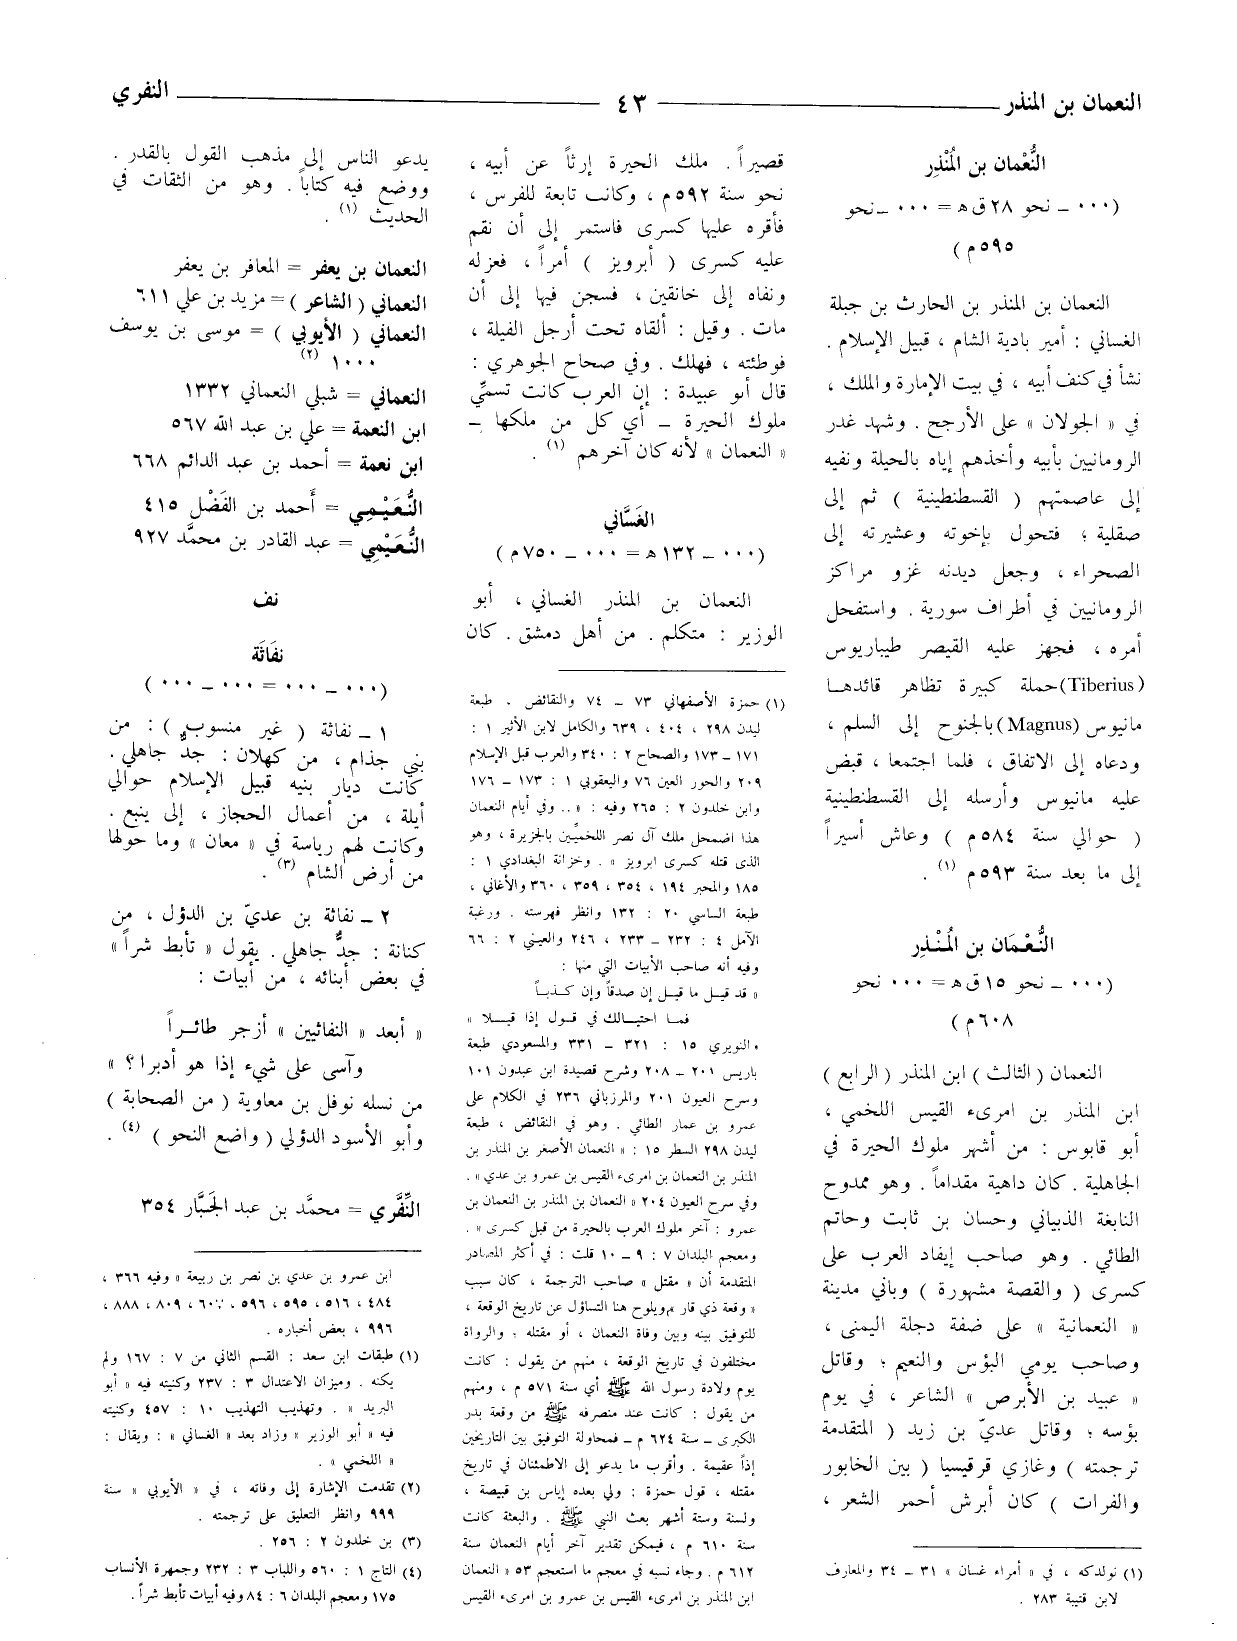 النعمان بن المنذر
٤٣
النفري
النُّعْمان بن المُنْذِر
(٠٠٠ ــ نحو ٢٨ ق ه = ٠٠٠ ــ نحو
٥٩٥ م)
النعمان بن المنذر بن الحارث بن جبلة
الغساني : أمير بادية الشام ، قبيل الإسلام .
نشأ في كنف أبيه ، في بيت الإمارة والملك ،
في « الجولان » على الأرجح . وشهد غدر
الرومانيين بأبيه وأخذهم إياه بالحيلة ونفيه
إلى عاصمتهم ( القسطنطينية ) ثم إلى
صقلية ؛ فتحول بإخوته وعشيرته إلى
الصحراء ، وجعل ديدنه غزو مراكز
الرومانيين في أطراف سورية . واستفحل
أمره ، فجهز عليه القيصر طيباريوس
(Tiberius) حملة كبيرة تظاهر قائدها
مانيوس (Magnus) بالجنوح إلى السلم ،
ودعاه إلى الاتفاق ، فلما اجتمعا ، قبض
عليه مانيوس وأرسله إلى القسطنطينية
( حوالي سنة ٥٨٤ م ) وعاش أسيراً
إلى ما بعد سنة ٥٩٣ م (١) .
النُّعْمَان بن المُنْذِر
(٠٠٠ ــ نحو ١٥ ق ه = ٠٠٠ نحو
٦٠٨ م)
النعمان ( الثالث ) ابن المنذر ( الرابع )
ابن المنذر بن امرىء القيس اللخمي ،
أبو قابوس : من أشهر ملوك الحيرة في
الجاهلية . كان داهية مقداماً . وهو ممدوح
النابغة الذبياني وحسان بن ثابت وحاتم
الطائي . وهو صاحب إيفاد العرب على
كسرى ( والقصة مشهورة ) وباني مدينة
« النعمانية » على ضفة دجلة اليمنى ،
وصاحب يومي البؤس والنعيم ؛ وقاتل
« عبيد بن الأبرص » الشاعر ، في يوم
بؤسه ؛ وقاتل عديّ بن زيد ( المتقدمة
ترجمته ) وغازي قرقيسيا ( بين الخابور
والفرات ) كان أبرش أحمر الشعر ،
(١) نولدكه ، في « أمراء غسان » ٣١ ــ ٣٤ والمعارف
لابن قتيبة ٢٨٣ .
قصيراً . ملك الحيرة إرثاً عن أبيه ،
نحو سنة ٥٩٢ م ، وكانت تابعة للفرس ،
فأقره عليها كسرى فاستمر إلى أن نقم
عليه كسرى ( أبرويز ) أمراً ، فعزله
ونفاه إلى خانقين ، فسجن فيها إلى أن
مات . وقيل : ألقاه تحت أرجل الفيلة ،
فوطئته ، فهلك . وفي صحاح الجوهري :
قال أبو عبيدة : إن العرب كانت تسمِّي
ملوك الحيرة ــ أي كل من ملكها ــ
« النعمان » لأنه كان آخرهم (١) .
الغَسَّاني
(٠٠٠ ــ ١٣٢ ه = ٠٠٠ ــ ٧٥٠ م)
النعمان بن المنذر الغساني ، أبو
الوزير : متكلم . من أهل دمشق . كان
(١) حمزة الأصفهاني ٧٣ ــ ٧٤ والنقائض . طبعة
ليدن ٢٩٨ ، ٤٠٤ ، ٦٣٩ والكامل لابن الأثير ١ :
١٧١ ــ ١٧٣ والصحاح ٢ : ٣٤٠ والعرب قبل الإسلام
٢٠٩ والحور العين ٧٦ واليعقوبي ١ : ١٧٣ ــ ١٧٦
وابن خلدون ٢ : ٢٦٥ وفيه : « .. وفي أيام النعمان
هذا اضمحل ملك آل نصر اللخميِّين بالجزيرة ، وهو
الذى قتله كسرى ابرويز » . وخزانة البغدادي ١ :
١٨٥ والمحبر ١٩٤ ، ٣٥٤ ، ٣٥٩ ، ٣٦٠ والأغاني ،
طبعة الساسي ٢٠ : ١٣٢ وانظر فهرسته . ورغبة
الآمل ٤ : ٢٣٢ ــ ٢٣٣ ، ٢٤٦ والعيني ٢ : ٦٦
وفيه أنه صاحب الأبيات التي منها :
« قد قيل ما قيل إن صدقاً وإن كذباً
فما احتيالك في قول إذا قيلا »
والنويري ١٥ : ٣٢١ ــ ٣٣١ والمسعودي طبعة
باريس ٢٠١ ــ ٢٠٨ وشرح قصيدة ابن عبدون ١٠١
وسرح العيون ٢٠١ والمرزباني ٢٣٦ في الكلام على
عمرو بن عمار الطائي . وهو في النقائض ، طبعة
ليدن ٢٩٨ السطر ١٥ : « النعمان الأصغر بن المنذر بن
المنذر بن النعمان بن امرىء القيس بن عمرو بن عدي » .
وفي سرح العيون ٢٠٤ « النعمان بن المنذر بن النعمان بن
عمرو : آخر ملوك العرب بالحيرة من قبل كسرى » .
ومعجم البلدان ٧ : ٩ ــ ١٠ قلت : في أكثر المصادر
المتقدمة أن « مقتل » صاحب الترجمة ، كان سبب
« وقعة ذي قار » ويلوح هنا التساؤل عن تاريخ الوقعة ،
للتوفيق بينه وبين وفاة النعمان ، أو مقتله ؛ والرواة
مختلفون في تاريخ الوقعة ، منهم من يقول : كانت
يوم ولادة رسول الله ﷺ أي سنة ٥٧١ م ، ومنهم
من يقول : كانت عند منصرفه ﷺ من وقعة بدر
الكبرى ــ سنة ٦٢٤ م ــ فمحاولة التوفيق بين التاريخين
إذاً عقيمة . وأقرب ما يدعو إلى الاطمئنان في تاريخ
مقتله ، قول حمزة : ولي بعده إياس بن قبيصة ،
ولسنة وستة أشهر بعث النبي ﷺ . والبعثة كانت
سنة ٦١٠ م ، فيمكن تقدير آخر أيام النعمان سنة
٦١٢ م . وجاء نسبه في معجم ما استعجم ٥٣ « النعمان
ابن المنذر بن امرىء القيس بن عمرو بن امرىء القيس
يدعو الناس إلى مذهب القول بالقدر .
ووضع فيه كتاباً . وهو من الثقات في
الحديث (١) .
النعمان بن يعفر = المعافر بن يعفر
النعماني ( الشاعر ) = مزيد بن علي ٦١١
النعماني ( الأيوبي ) = موسى بن يوسف
١٠٠٠ (٢)
النعماني = شبلي النعماني ١٣٣٢
ابن النعمة = علي بن عبد الله ٥٦٧
ابن نعمة = أحمد بن عبد الدائم ٦٦٨
النُّعَيْمِي = أَحمد بن الفَضْل ٤١٥
النُّعَيْمِي = عبد القادر بن محمَّد ٩٢٧
نف
نفَاثَة
(٠٠٠ ــ ٠٠٠ = ٠٠٠ ــ ٠٠٠)
١ ــ نفاثة ( غير منسوب ) : من
بني جذام ، من كهلان : جدّ جاهلي .
كانت ديار بنيه قبيل الإسلام حوالي
أيلة ، من أعمال الحجاز ، إلى ينبع .
وكانت لهم رياسة في « معان » وما حولها
من أرض الشام (٣) .
٢ ــ نفاثة بن عديّ بن الدؤل ، من
كنانة : جدٌّ جاهلي . يقول « تأبط شراً »
في بعض أبنائه ، من أبيات :
« أبعد « النفاثيين » أزجر طائراً
وآسى على شيء إذا هو أدبرا ؟ »
من نسله نوفل بن معاوية ( من الصحابة )
وأبو الأسود الدؤلي ( واضع النحو ) (٤) .
النِّفَّري = محمَّد بن عبد الجَبَّار ٣٥٤
ابن عمرو بن عدي بن نصر بن ربيعة » وفيه ٣٦٦ ،
٤٨٤ ، ٥١٦ ، ٥٩٥ ، ٥٩٦ ، ٦٠٧ ، ٨٠٩ ، ٨٨٨ ،
٩٩٦ ، بعض أخباره .
(١) طبقات ابن سعد : القسم الثاني من ٧ : ١٦٧ ولم
يكنه . وميزان الاعتدال ٣ : ٢٣٧ وكنيته فيه « أبو
البريد » . وتهذيب التهذيب ١٠ : ٤٥٧ وكنيته
فيه « أبو الوزير » وزاد بعد « الغساني » : ويقال :
« اللخمي » .
(٢) تقدمت الإشارة إلى وفاته ، في « الأيوبي » سنة
٩٩٩ وانظر التعليق على ترجمته .
(٣) بن خلدون ٢ : ٢٥٦ .
(٤) التاج ١ : ٥٦٠ واللباب ٣ : ٢٣٢ وجمهرة الأنساب
١٧٥ ومعجم البلدان ٦ : ٨٤ وفيه أبيات تأبط شراً .